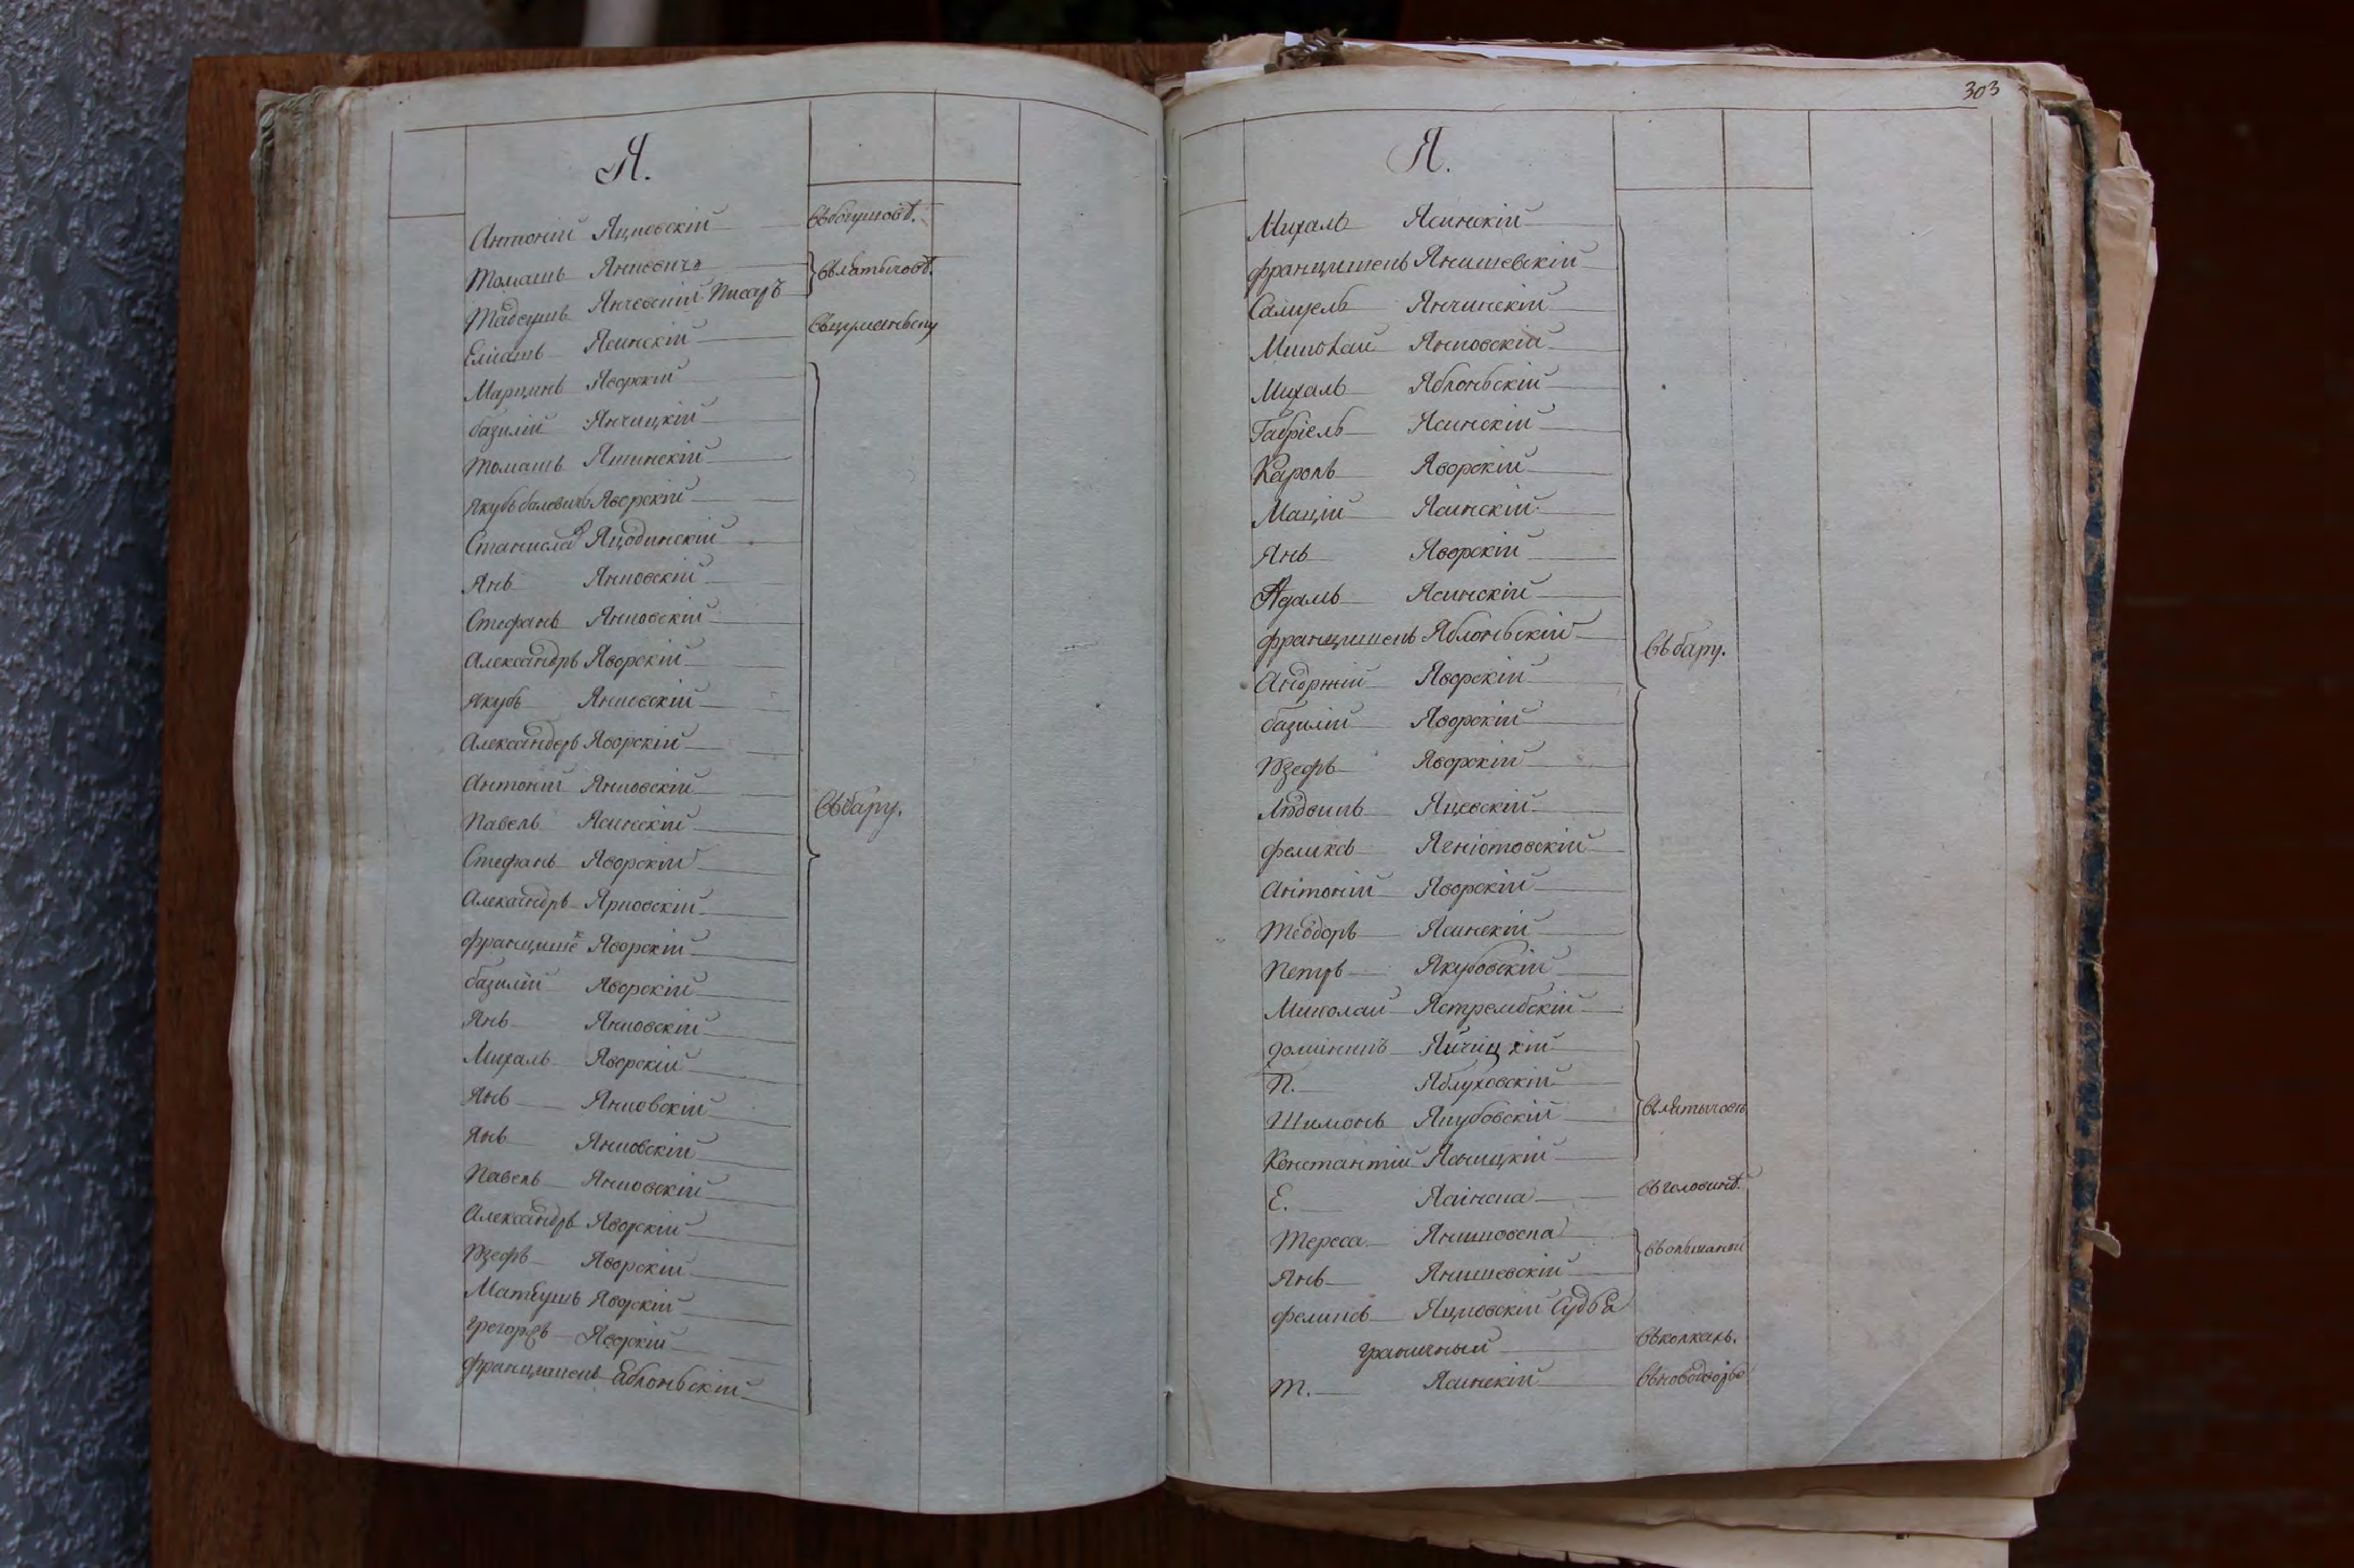 Я.
Антоній Яцковскій
Томашъ Янкевичъ
Тадеушъ Янчевскій Писарь
Еліашъ Ясинскій
Марцинъ Яворскій
базилій Янчицкій
Томашъ Яшинскій
Якубъ Яворскій
Станислав Яцодинскій
Янъ Янковскій
Стефанъ Янковскій
Александръ Яворскій
Якубъ Янковскій
Александеръ Яворскій
Антоній Янковскій
Павелъ Ясинскій
Стефанъ Яворскій
Александръ Ярковскій
францише Яворскій
базилій Яворскій
Янъ Янковскій
Михаль Яворскій
Янъ Янковскій
Янъ Янковскій
Павелъ Янковскій
Александръ Яворскій
Юзефъ Яворскій
Матеушъ Яворскій
Грегоръ Яворскій
францишекъ Яблоньскій
въ бару.
303
Я.
Михаль Ясинскій
францишекъ Янишевскій
Самуель Янчинскій
Миколай Янковскій
Михаль Яблоньскій
Габріель Ясинскій
Кароль Яворскій
Мацій Ясинскій
Янъ Яворскій
Адамъ Ясинскій
францишекъ Яблоньскій
Андржій Яворскій
базилій Яворскій
Юзефъ Яворскій
Людвикъ Яцевскій
феликсъ
Антоній Яворскій
Теодоръ Ясинскій
Петръ Якубовскій
Миколай Ястрембскій
въ бару.
доминикъ
П. Яблуховскій
Шимонъ Якубовскій
Константій Ясницкій
въ лятычовѣ
Е. Ясінска
въ головинѣ.
Тереса
Янъ Янишевскій
въ ольшанки
феликсъ Яцковскій Судья
граничный
въ колкахъ.
Т. Ясинскій